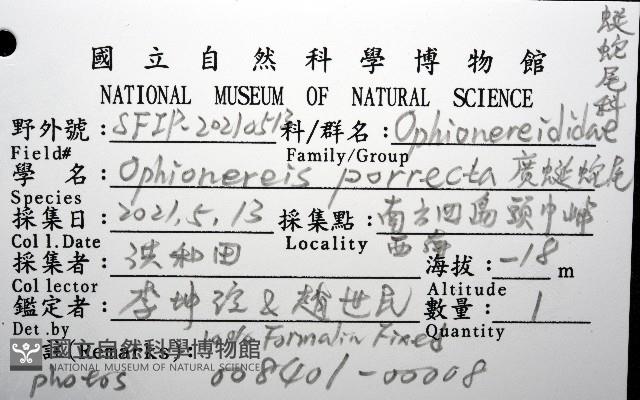 國立自然科學博物館
NATIONAL MUSEUM OF NATURAL SCIENCE
蜒蛇尾科
野外號: SFIP-20210513 科/群名: Ophionereididae
Field# Family/Group
學 名: Ophionereis porrecta 廣蜒蛇尾
Species
採集日: 2021.5.13 採集點: 南方四島頭巾嶼
Coll.Date Locality 西南
採集者: 洪和田 海拔: -18 m
Collector Altitude
鑑定者: 李坤瑄 & 趙世民 數量: 1
Det.by Quantity
(Remarks): Formalin Fixed
國立自然科學博物館
NATIONAL MUSEUM OF NATURAL SCIENCE
photos 008401-00008